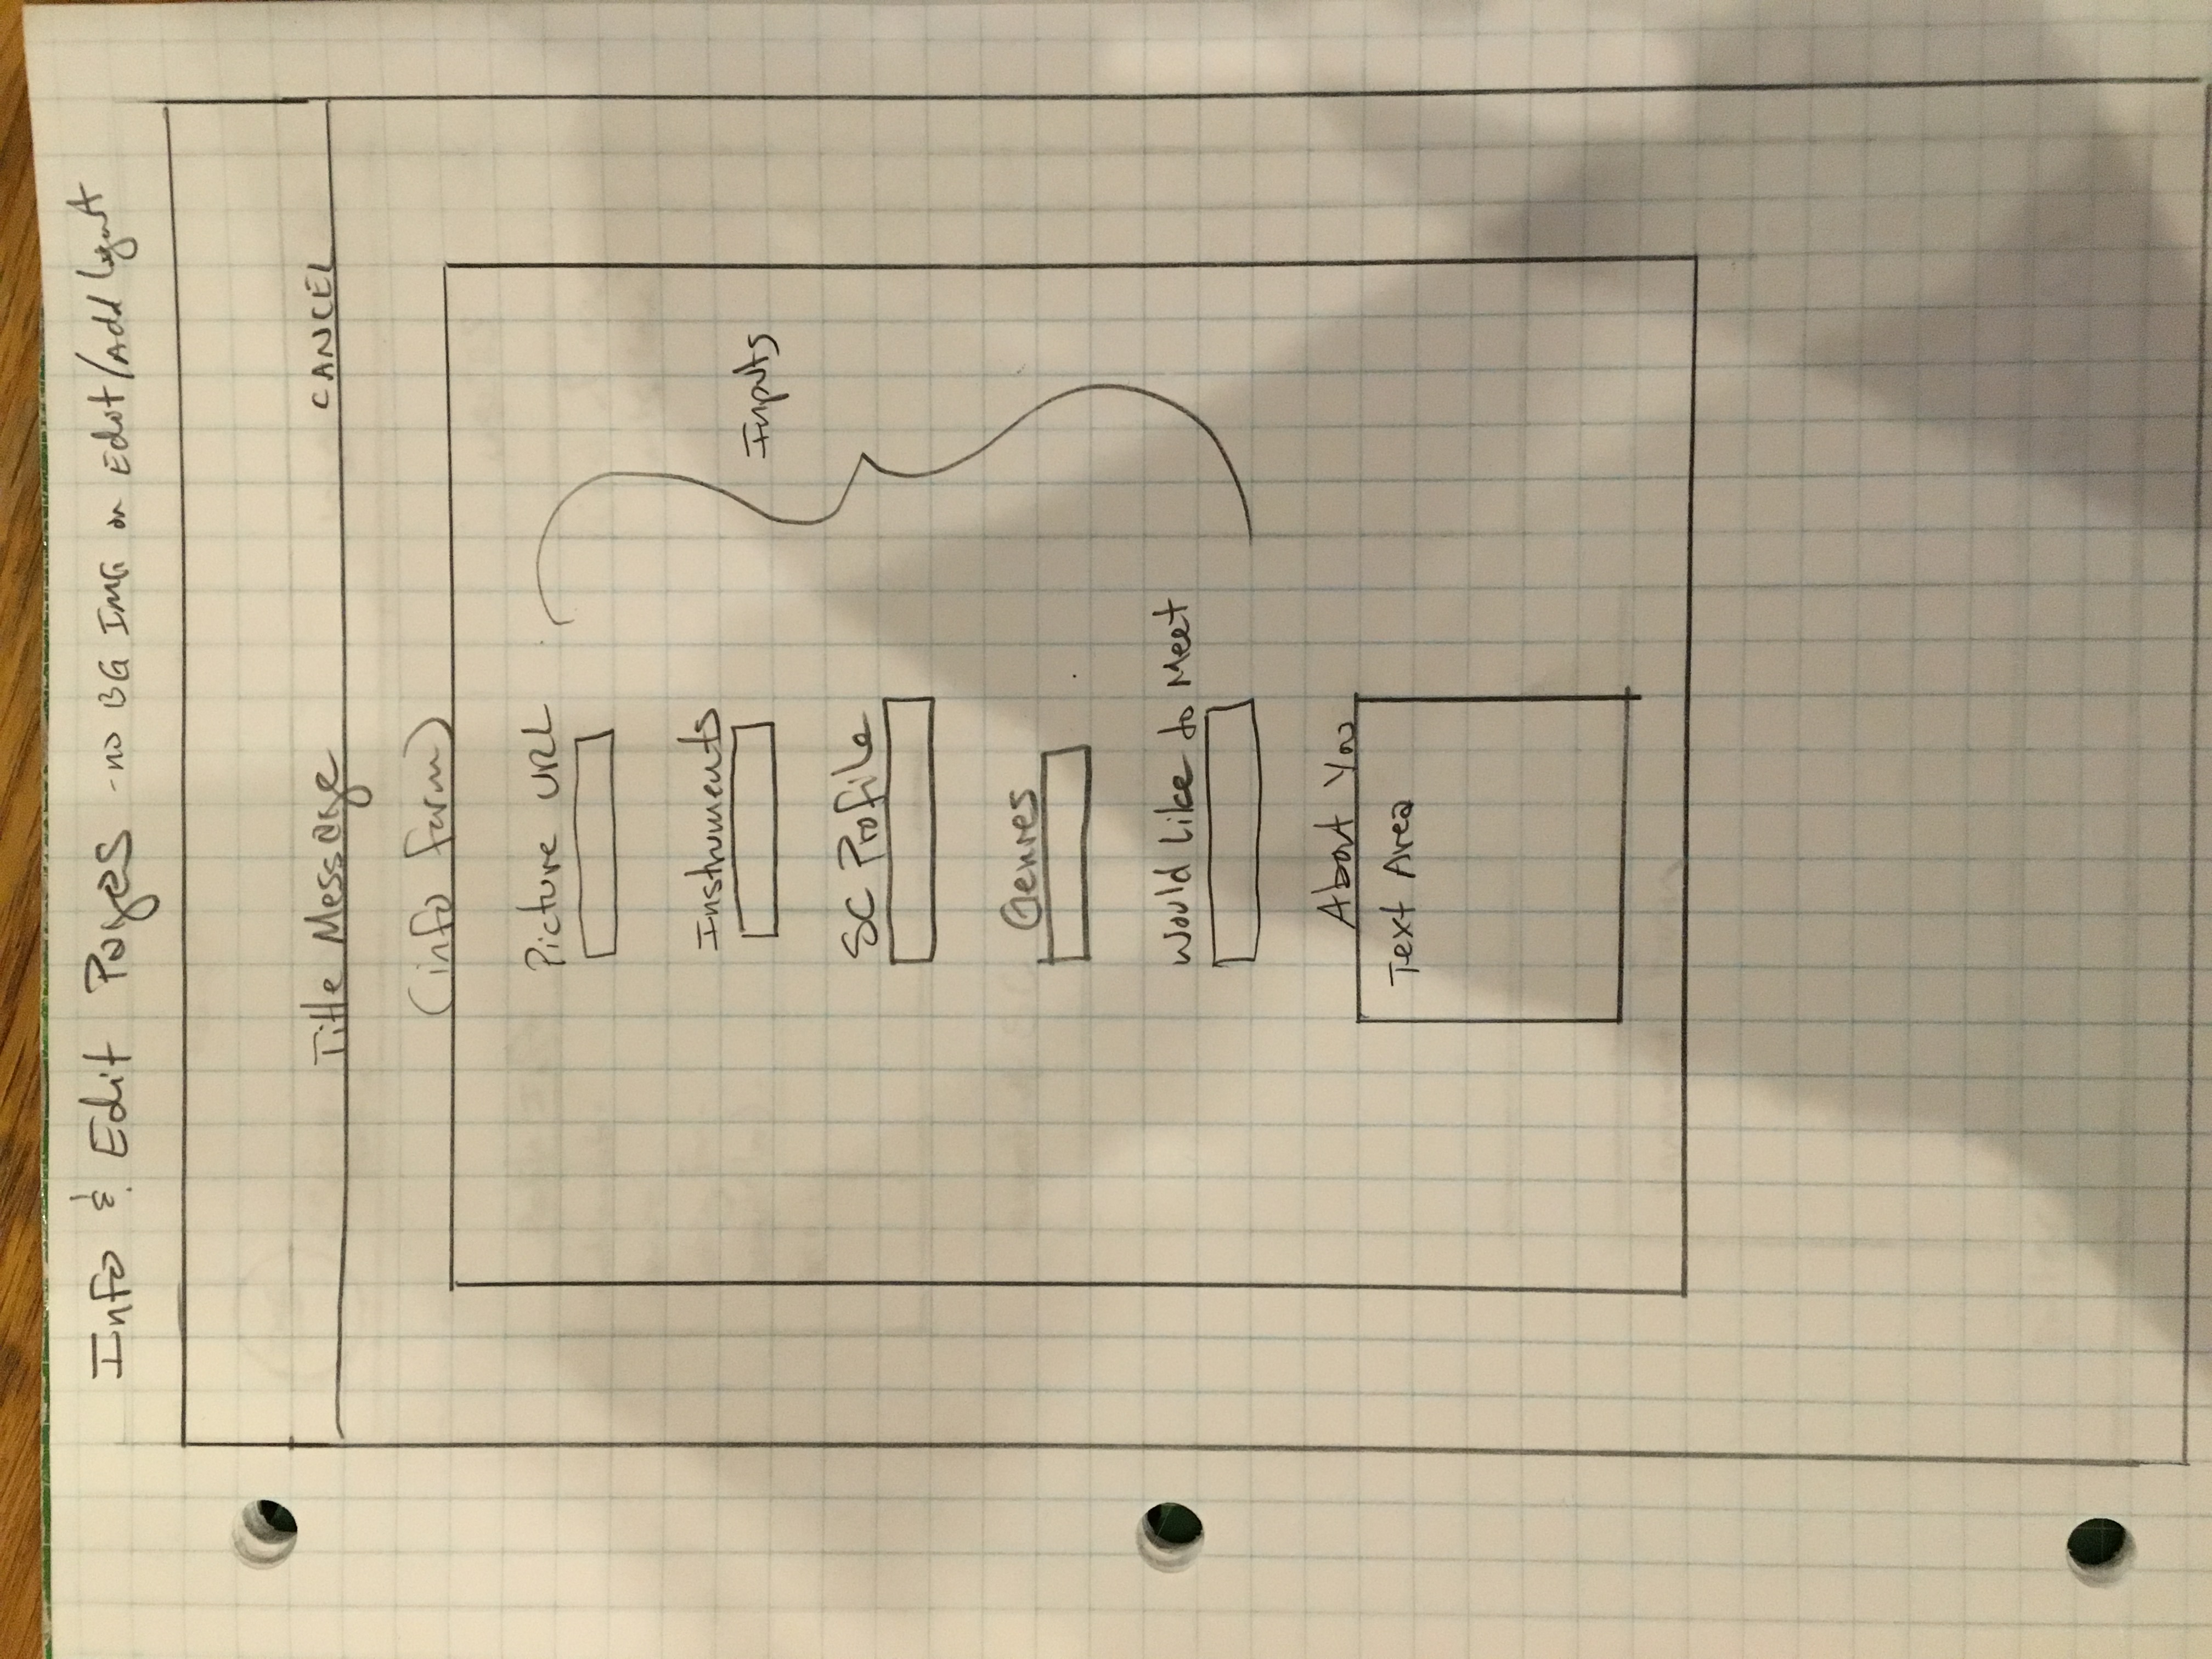 Info & Edit Pages - no BG IMG on Edit/Add layout
Title Message CANCEL
(info form)
Picture URL
Instruments
Inputs
SC Profile
Genres
Would Like to Meet
About You
Text Area